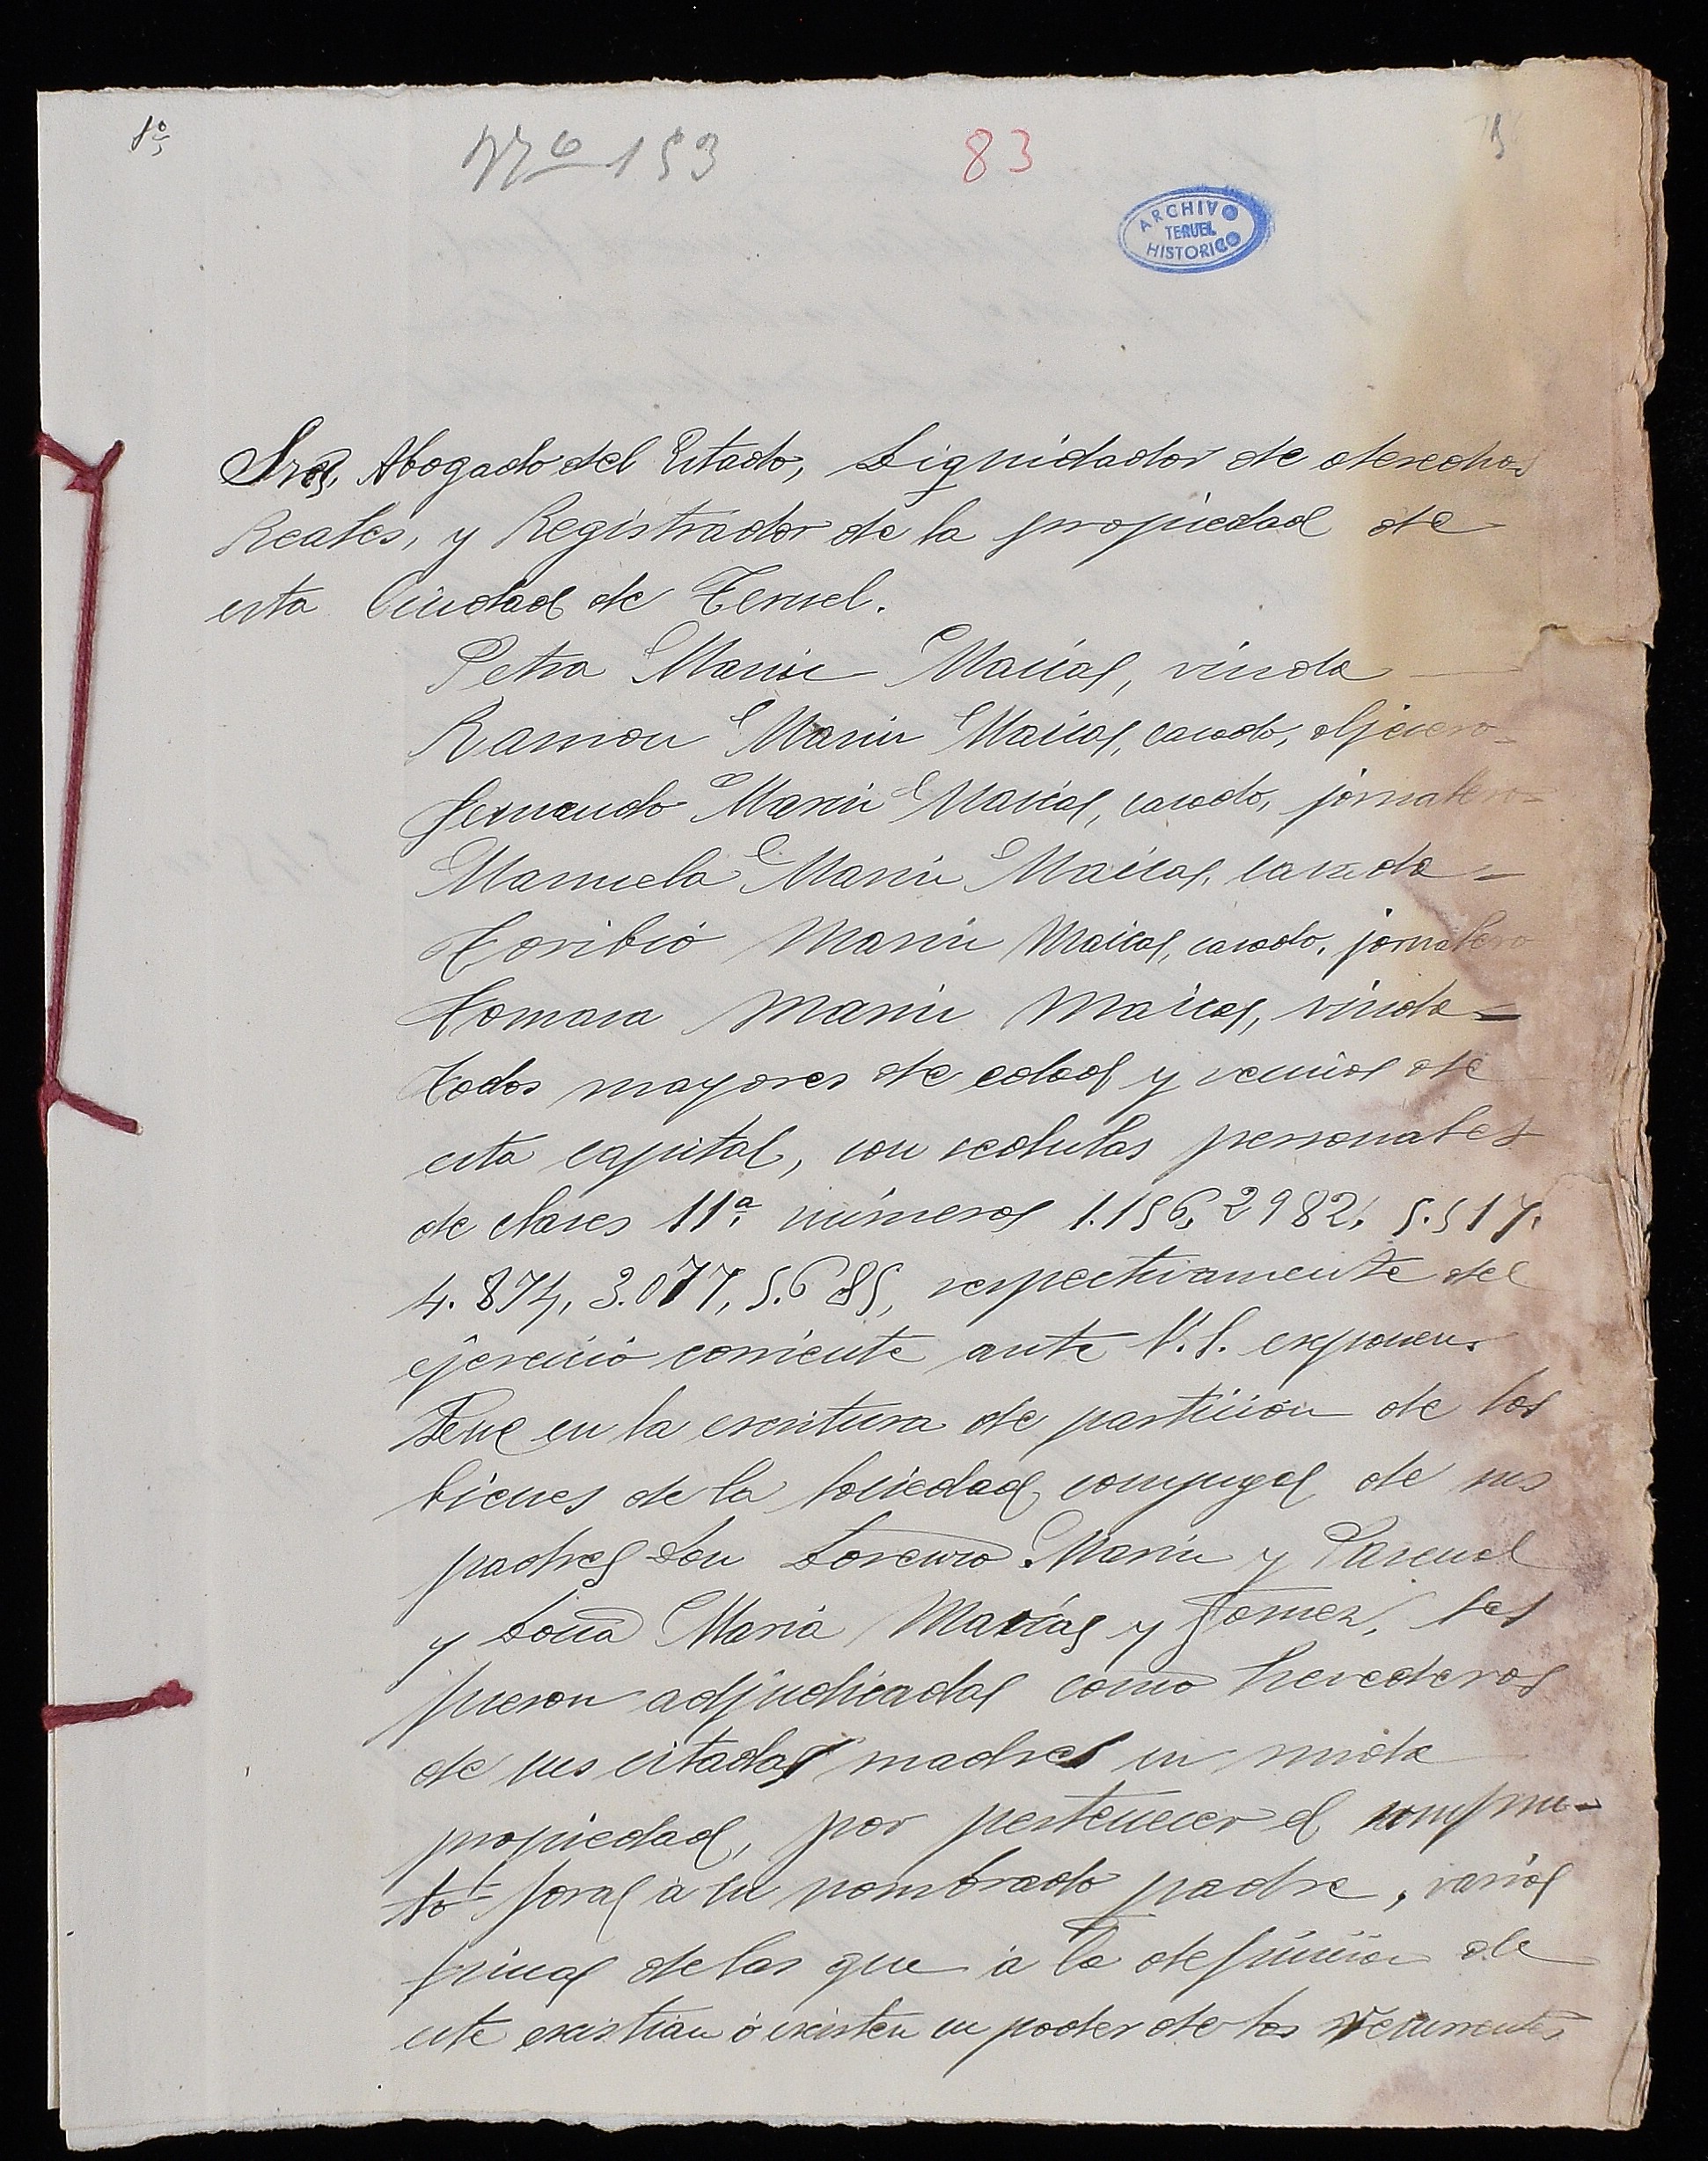 1º
Nº 153
83
ARCHIVO
TERUEL
HISTORICO
Sres, Abogado del Estado, Liquidador de derechos
Reales, y Registrador de la propiedad de
esta Ciudad de Teruel.
Petra Marin Maicas, viuda
Ramon Marin Maicas, casado,
Fernando Marin Maicas, casado, jornalero=
Manuela Marin Maicas, casada=
Toribio Marin Maicas, casado, jornalero
Tomasa Marin Maicas, viuda=
Todos mayores de edad y vecinos de
esta capital, con cedulas personales
de clases 11ª numeros 1.156, 2982, 5.517.
4.874, 3.077, 5.685, respectivamente del
ejercicio corriente ante V.S. exponen.
Que en la escritura de particion de los
bienes de la sociedad conyugal de sus
padres Don Lorenzo Marin y Pascual
y Doña Maria Maicas y Gomez, les
fueron adjudicadas como herederos
de sus citadas madres en nuda
propiedad, por pertenecer el usufruc-
to foral á su nombrado padre, varias
fincas de las que á la defuncion de
este existian ó existen en poder de los recurrentes